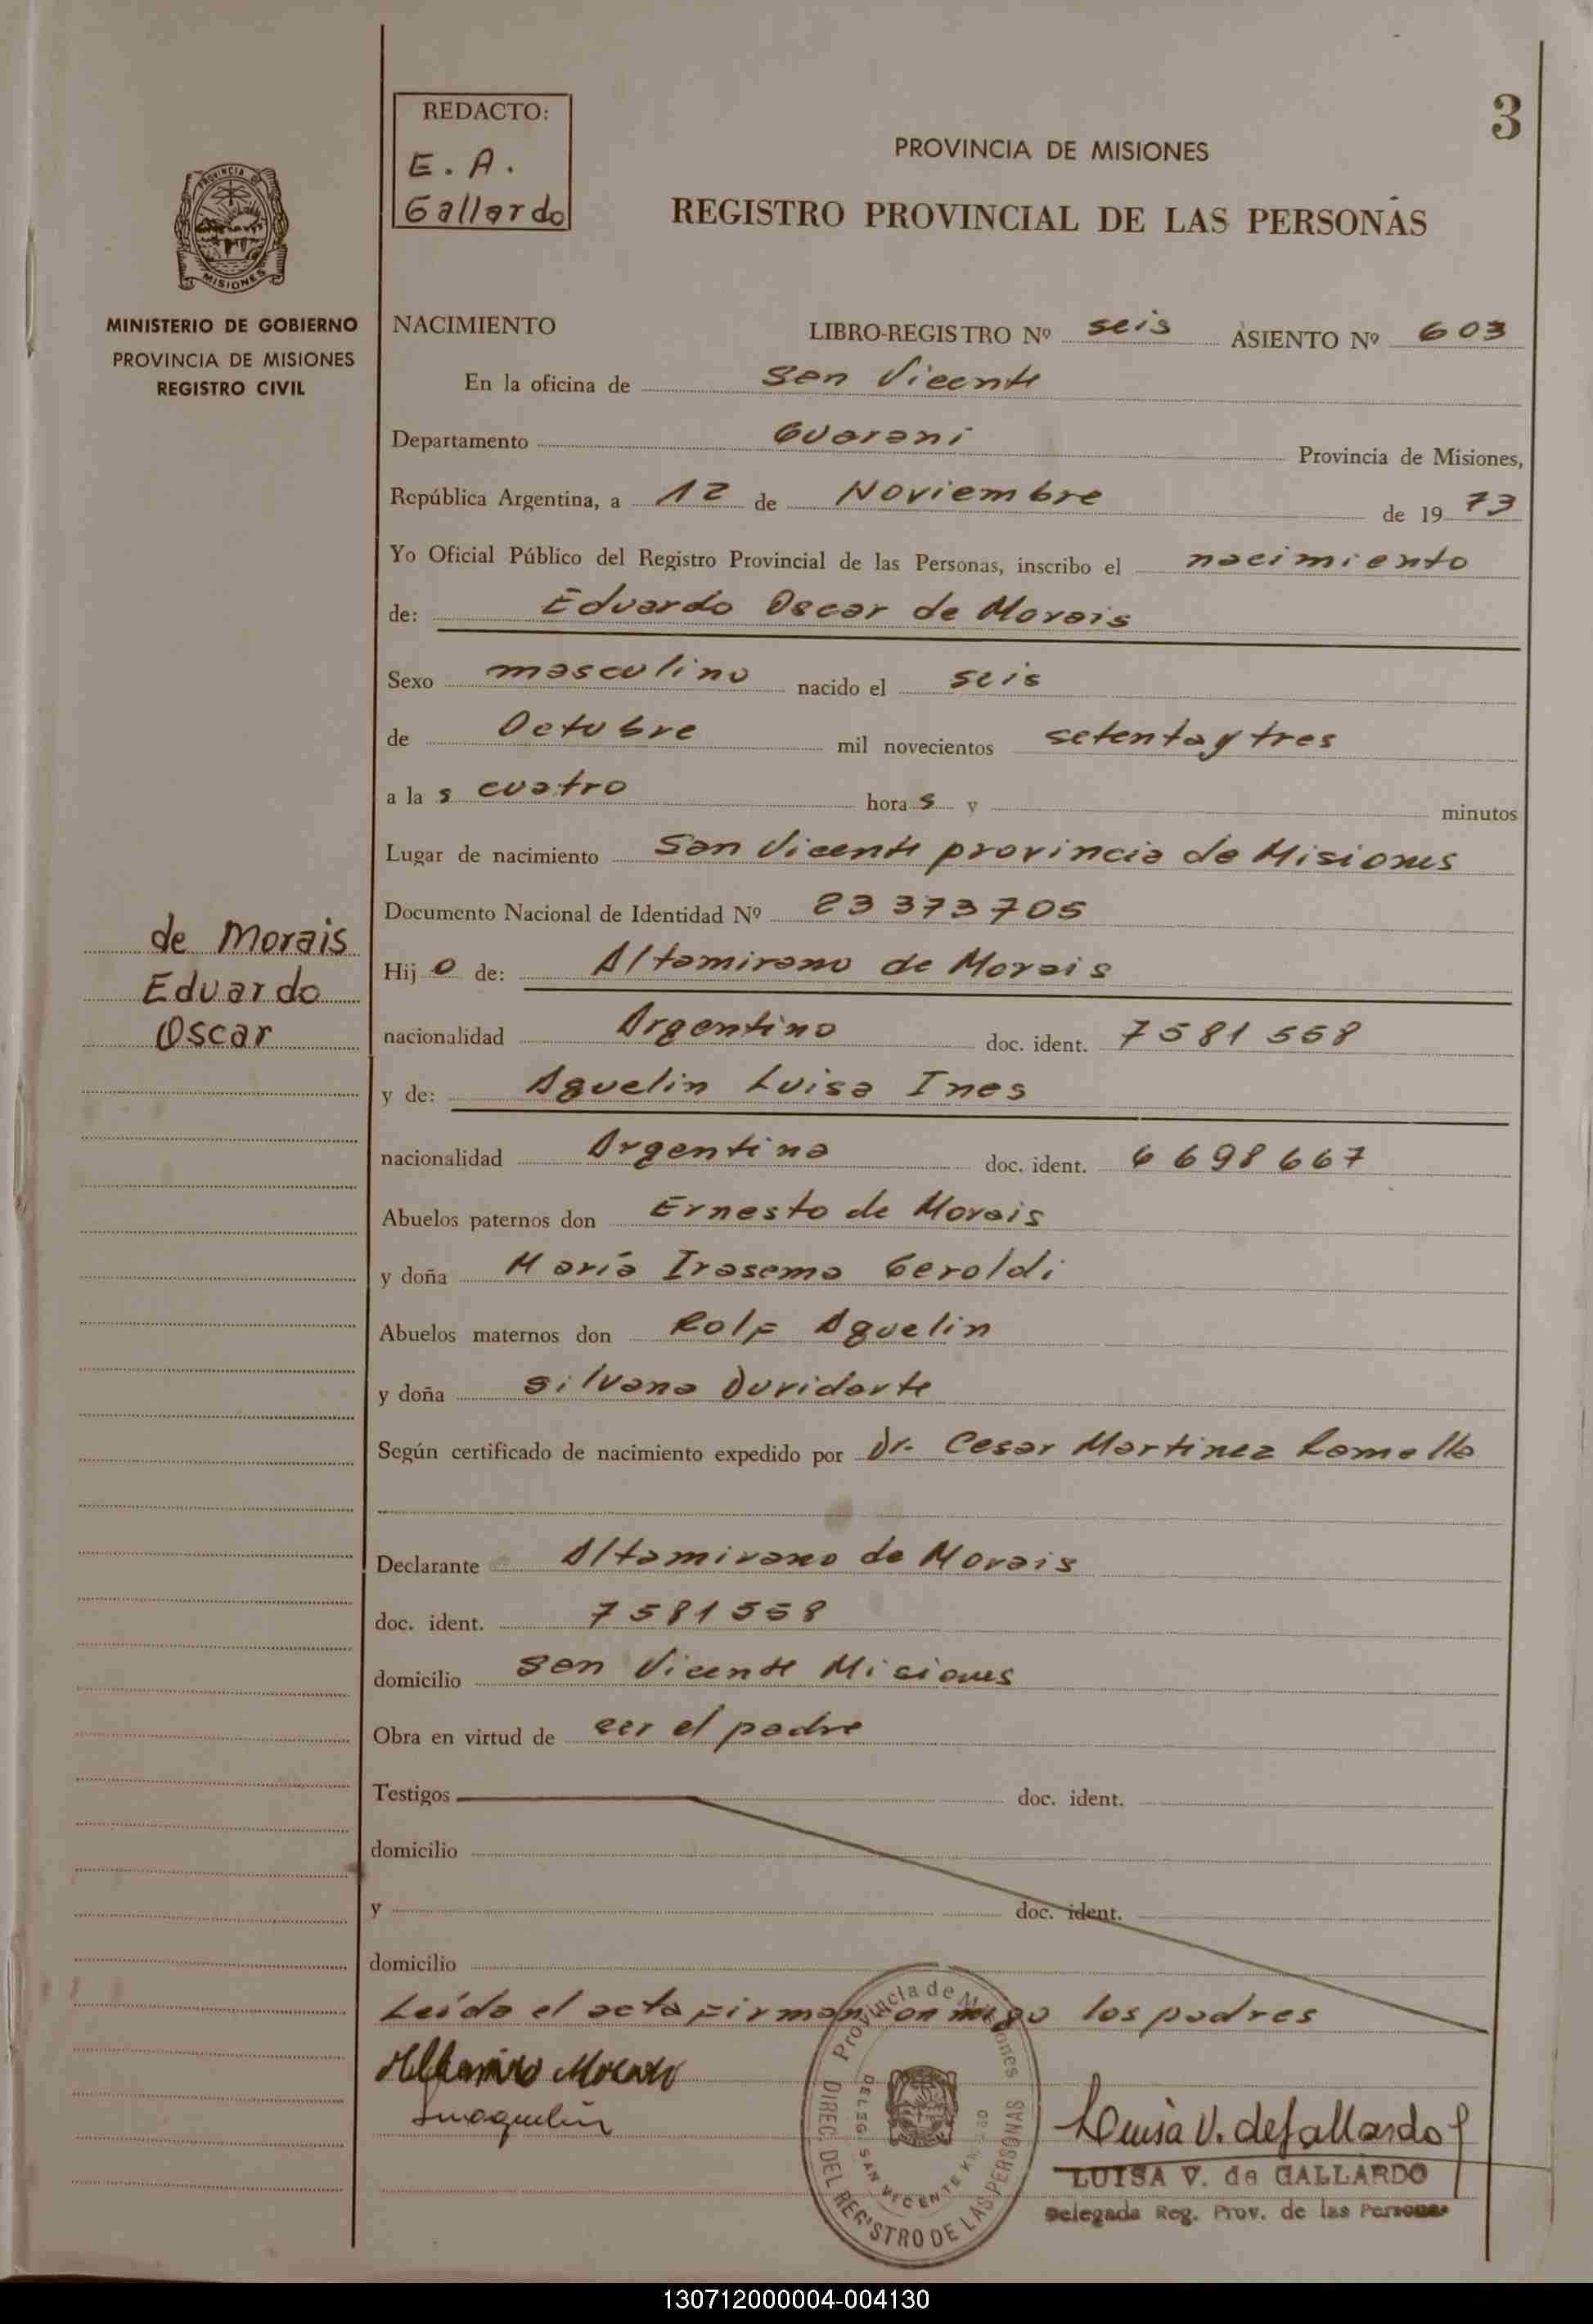 3
REDACTO:
E. A.
Gallardo
PROVINCIA DE MISIONES
REGISTRO PROVINCIAL DE LAS PERSONAS
PROVINCIA DE
MISIONES
MINISTERIO DE GOBIERNO
PROVINCIA DE MISIONES
REGISTRO CIVIL
NACIMIENTO LIBRO-REGISTRO Nº seis ASIENTO Nº 603
En la oficina de San Vicente
Departamento Guarani Provincia de Misiones,
República Argentina, a 12 de Noviembre de 1973
Yo Oficial Público del Registro Provincial de las Personas, inscribo el nacimiento
de: Eduardo Oscar de Morais
Sexo masculino nacido el seis
de Octubre mil novecientos setenta y tres
a la s cuatro hora s y minutos
Lugar de nacimiento San Vicente provincia de Misiones
Documento Nacional de Identidad Nº 23 373 705
de Morais
Eduardo
Oscar
Hij o de: Altamirano de Morais
nacionalidad Argentino doc. ident. 7 581 558
y de: Aguelin Luisa Ines
nacionalidad Argentina doc. ident. 6 698 667
Abuelos paternos don Ernesto de Morais
y doña María Irasema Geroldi
Abuelos maternos don Rolf Aguelin
y doña Silvana Duridarte
Según certificado de nacimiento expedido por Dr. Cesar Martinez
Declarante Altamirano de Morais
doc. ident. 7 581 558
domicilio San Vicente Misiones
Obra en virtud de ser el padre
Testigos doc. ident.
domicilio
y doc. ident.
domicilio
Leída el acta firman conmigo los padres
Provincia de Misiones
DIREC. DEL REGISTRO DE LAS PERSONAS
DELEG. SAN VICENTE
Luisa V. de Gallardo
LUISA V. de GALLARDO
Delegada Reg. Prov. de las Personas
130712000004-004130